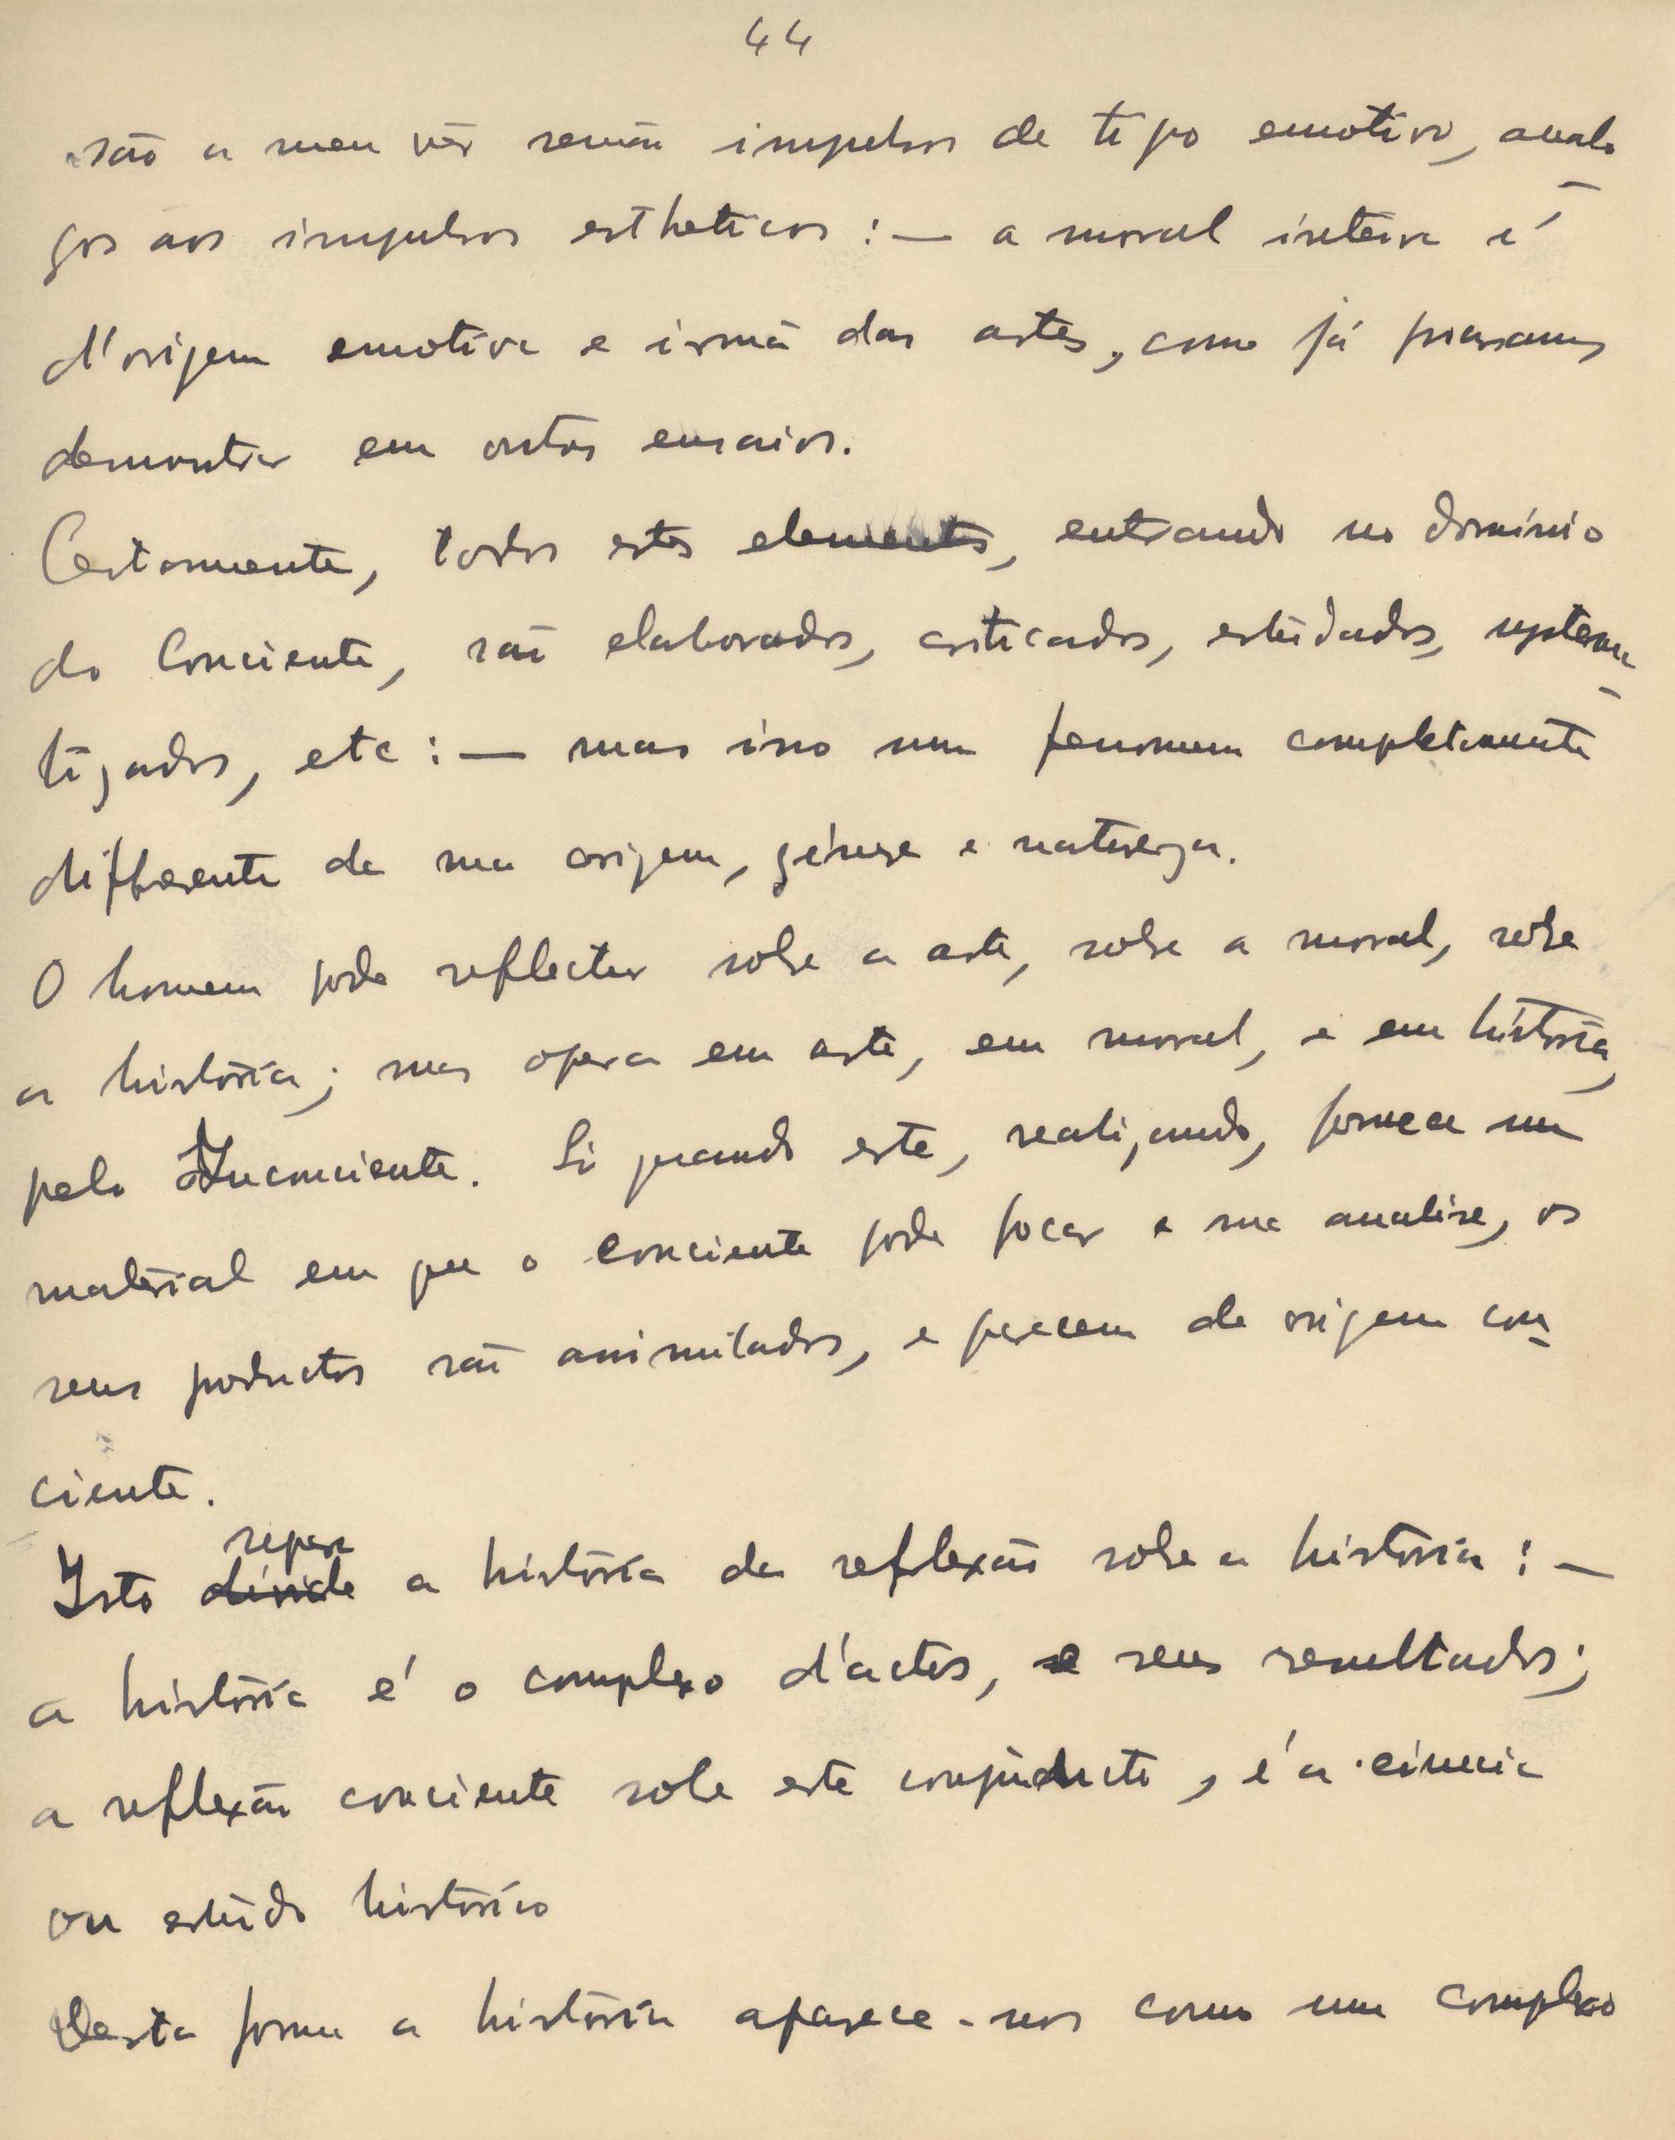 44
são a meu vêr senão impulsos de tipo emotivo, analo
gos aos impulsos estheticos : — a moral inteira é
d'origem emotiva e irmã das artes, como já
demonstrar em outros ensaios.
Certamente, todos estes elementos, entrando no dominio
do Conciente, são elaborados, criticados, estudados, systema-
tizados, etc : — mas isso num fenomeno completamente
differente de sua origem, génese e natureza.
O homem pode reflectir sobre a arte, sobre a moral, sobre
a história; mas opera em arte, em moral, e em história,
pelo Inconciente. Si quando este, realizando, fornece um
material em que o conciente pode focar a sua analise, os
seus productos são assimilados, e parecem de origem con-
ciente.
separa
Isto divide a história da reflexão sobre a história : —
a história é o complexo d'actos, e seus resultados;
a reflexão conciente sobre este conjuncto, é a ciencia
ou estudo histórico
Desta forma a história aparece-nos como um complexo